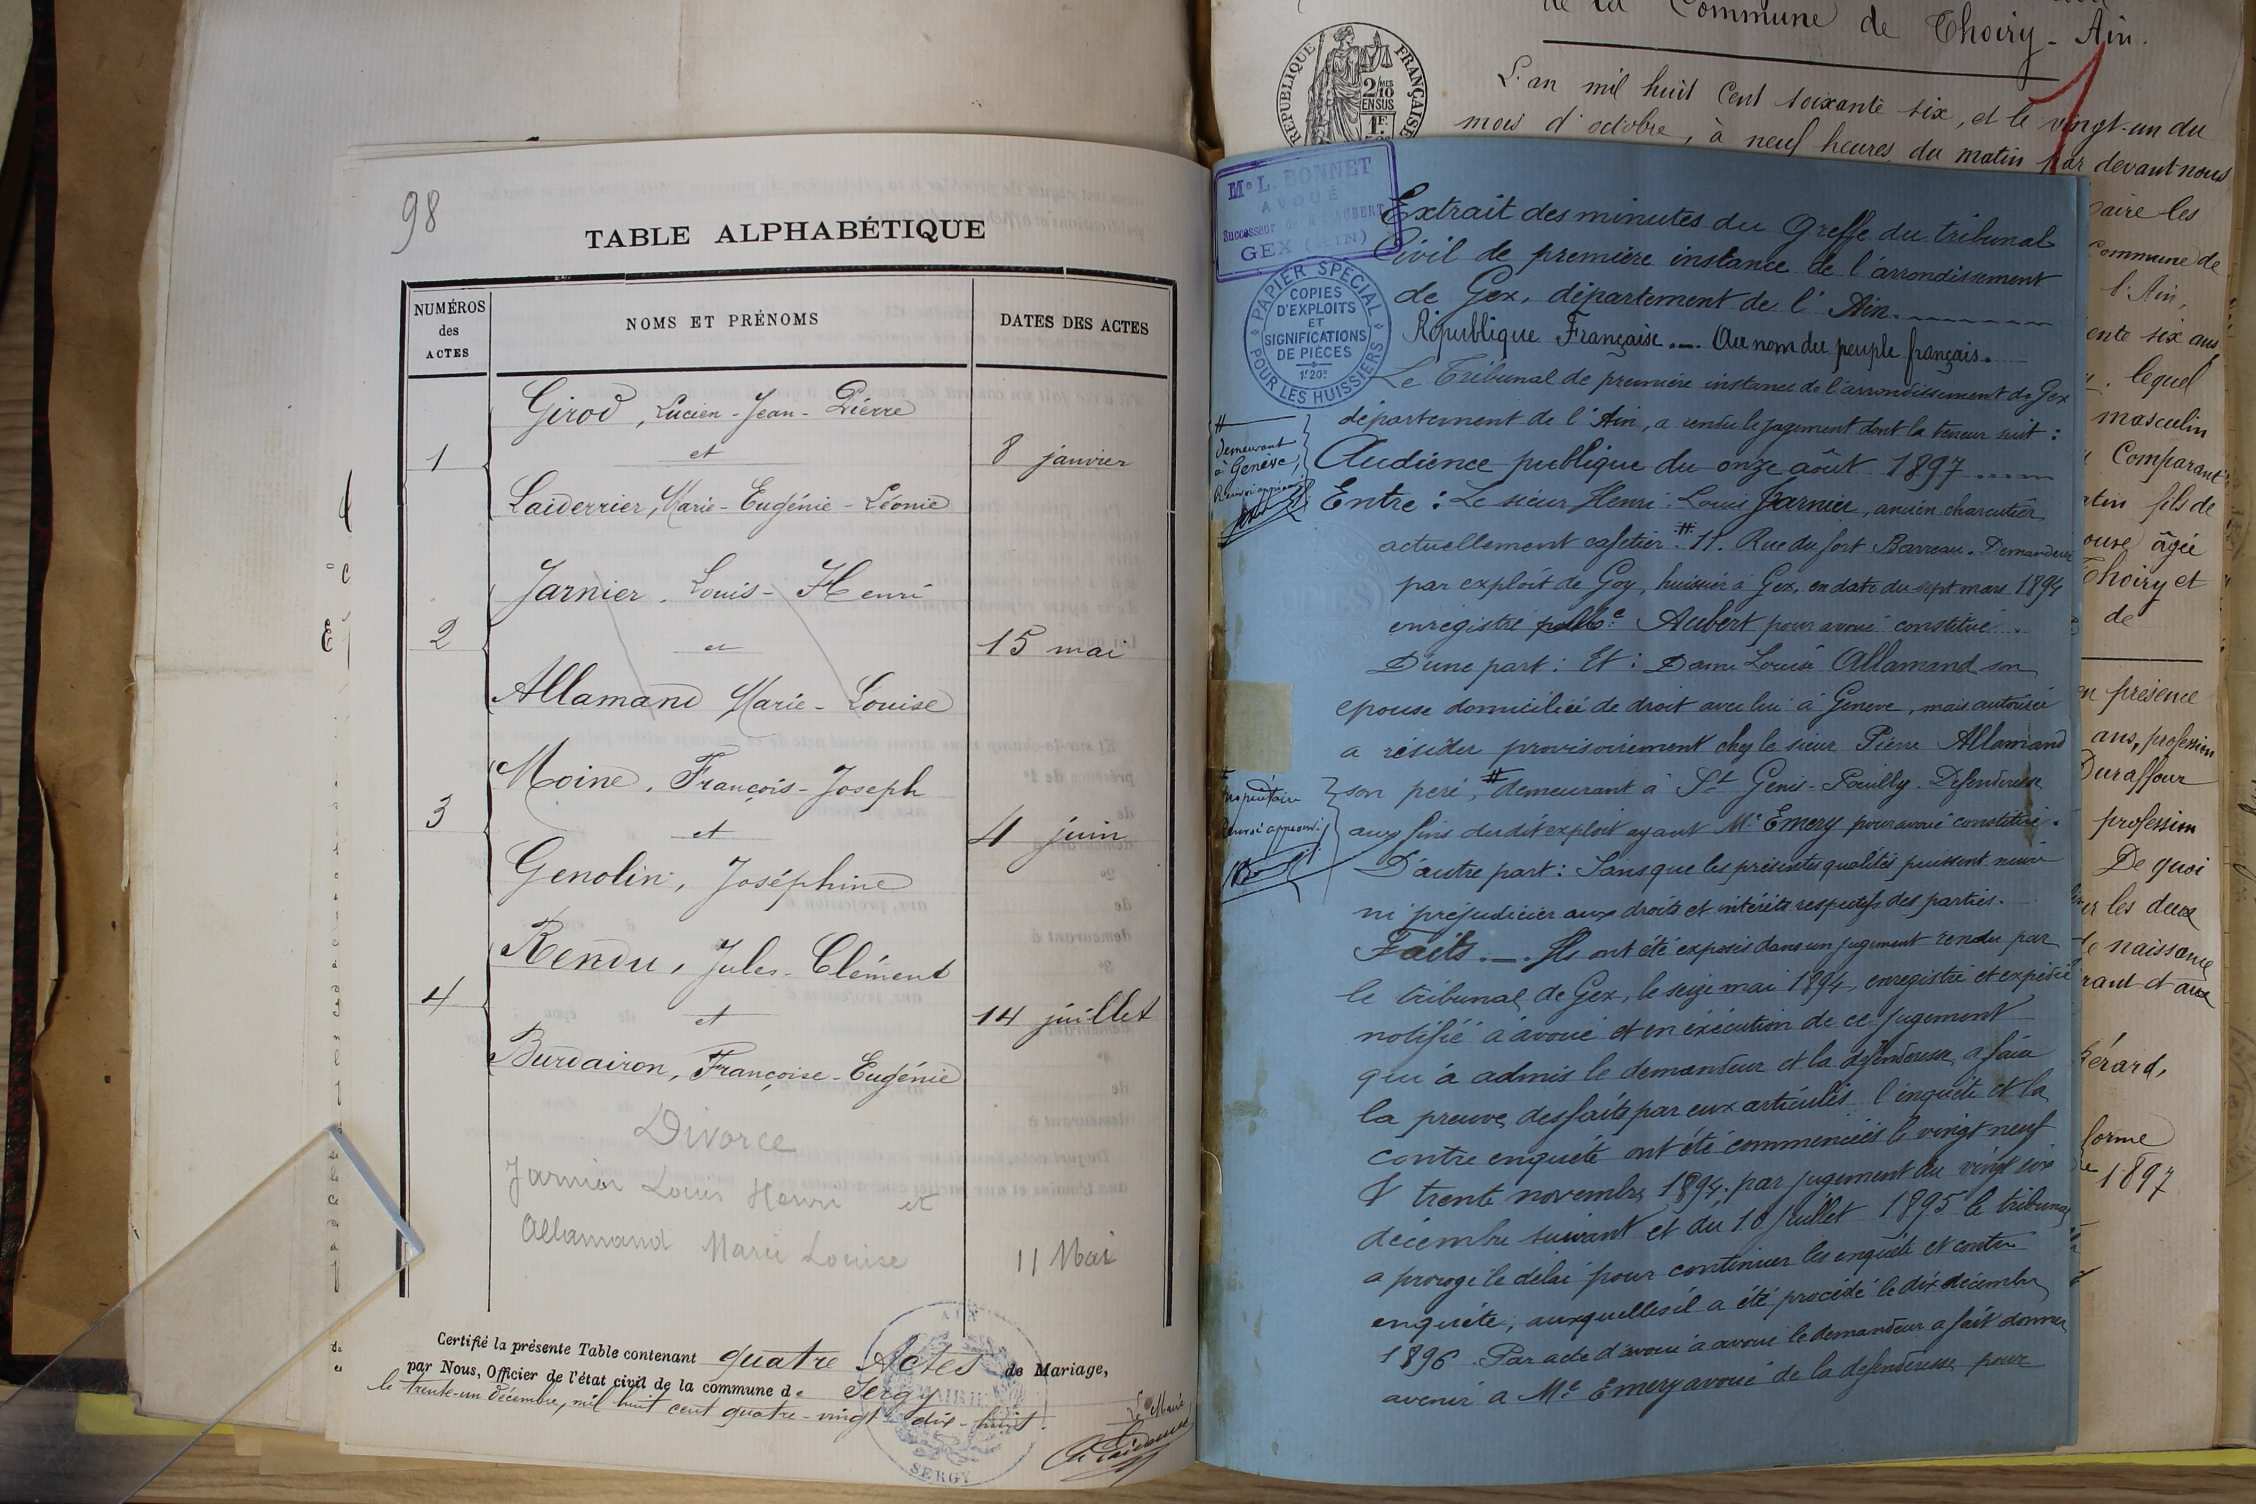 98
TABLE ALPHABÉTIQUE
NUMÉROS des ACTES
NOMS ET PRÉNOMS
DATES DES ACTES
Girod, Lucien-Jean-Pierre
1
et
8 janvier
Laiderrier, Marie-Eugénie-Léonie
Jarnier, Louis-Henri
2
et
15 mai
Allamand Marie-Louise
Moine, François-Joseph
3
et
4 juin
Genolin, Joséphine
Rendu, Jules-Clément
4
et
14 juillet
Burdairon, Françoise-Eugénie
Divorce
Jarnier Louis Henri et
Allamand Marie Louise
11 Mai
Certifié la présente Table contenant quatre Actes de Mariage,
par Nous, Officier de l'état civil de la commune de Sergy
le trente-un décembre, mil huit cent quatre-vingt dix-huit.
Le Maire,
SERGY
de la Commune de Thoiry - Ain.
RÉPUBLIQUE FRANÇAISE
2/10 EN SUS
1F.
L'an mil huit cent soixante six, et le vingt-un du
mois d'octobre, à neuf heures du matin par devant nous
Me L. BONNET
AVOUÉ
Successeur de Me AUBERT
GEX (AIN)
PAPIER SPÉCIAL
COPIES
D'EXPLOITS
ET
SIGNIFICATIONS
DE PIÈCES
POUR LES HUISSIERS
Extrait des minutes du Greffe du tribunal
Civil de première instance de l'arrondissement
de Gex, département de l'Ain.
République Française. — Au nom du peuple français.
Le Tribunal de première instance de l'arrondissement de Gex
département de l'Ain, a rendu le jugement dont la teneur suit :
Audience publique du onze août 1897
# demeurant
à Genève,
Entre : Le sieur Henri Louis Jarnier, ancien charcutier
actuellement cafetier # 11. Rue du fort Barreau. Demandeur
par exploit de Goy, huissier à Gex, en date du sept mars 1894
enregistré Aubert pour avoué constitué.
D'une part : Et : Dame Louise Allamand son
épouse domiciliée de droit avec lui à Genève, mais autorisée
à résider provisoirement chez le sieur Pierre Allamand
# propriétaire
son père, # demeurant à St Genis-Pouilly. Défenderesse
aux fins dudit exploit ayant Me Emery pour avoué constitué.
D'autre part : Sans que les présentes qualités puissent nuire
ni préjudicier aux droits et intérêts respectifs des parties.
Faits. — Ils ont été exposés dans un jugement rendu par
le tribunal de Gex, le seize mai 1894, enregistré et expédié
notifié à avoué et en exécution de ce jugement
qui a admis le demandeur et la défenderesse à faire
la preuve des faits par eux articulés l'enquête et la
contre enquête ont été commencées le vingt neuf
& trente novembre 1894; par jugement du vingt six
décembre suivant et du 10 juillet 1895 le tribunal
a prorogé le délai pour continuer les enquête et contre
enquête, auxquelles il a été procédé le dix décembre
1896. Par acte d'avoué à avoué le demandeur a fait donner
avenir à Me Emery avoué de la défenderesse pour
Commune de
l'Ain,
six ans
lequel
masculin
Comparant
fils de
âgée
Thoiry et
de
en présence
ans, profession
Duraffour
profession
De quoi
les deux
naissance
1897